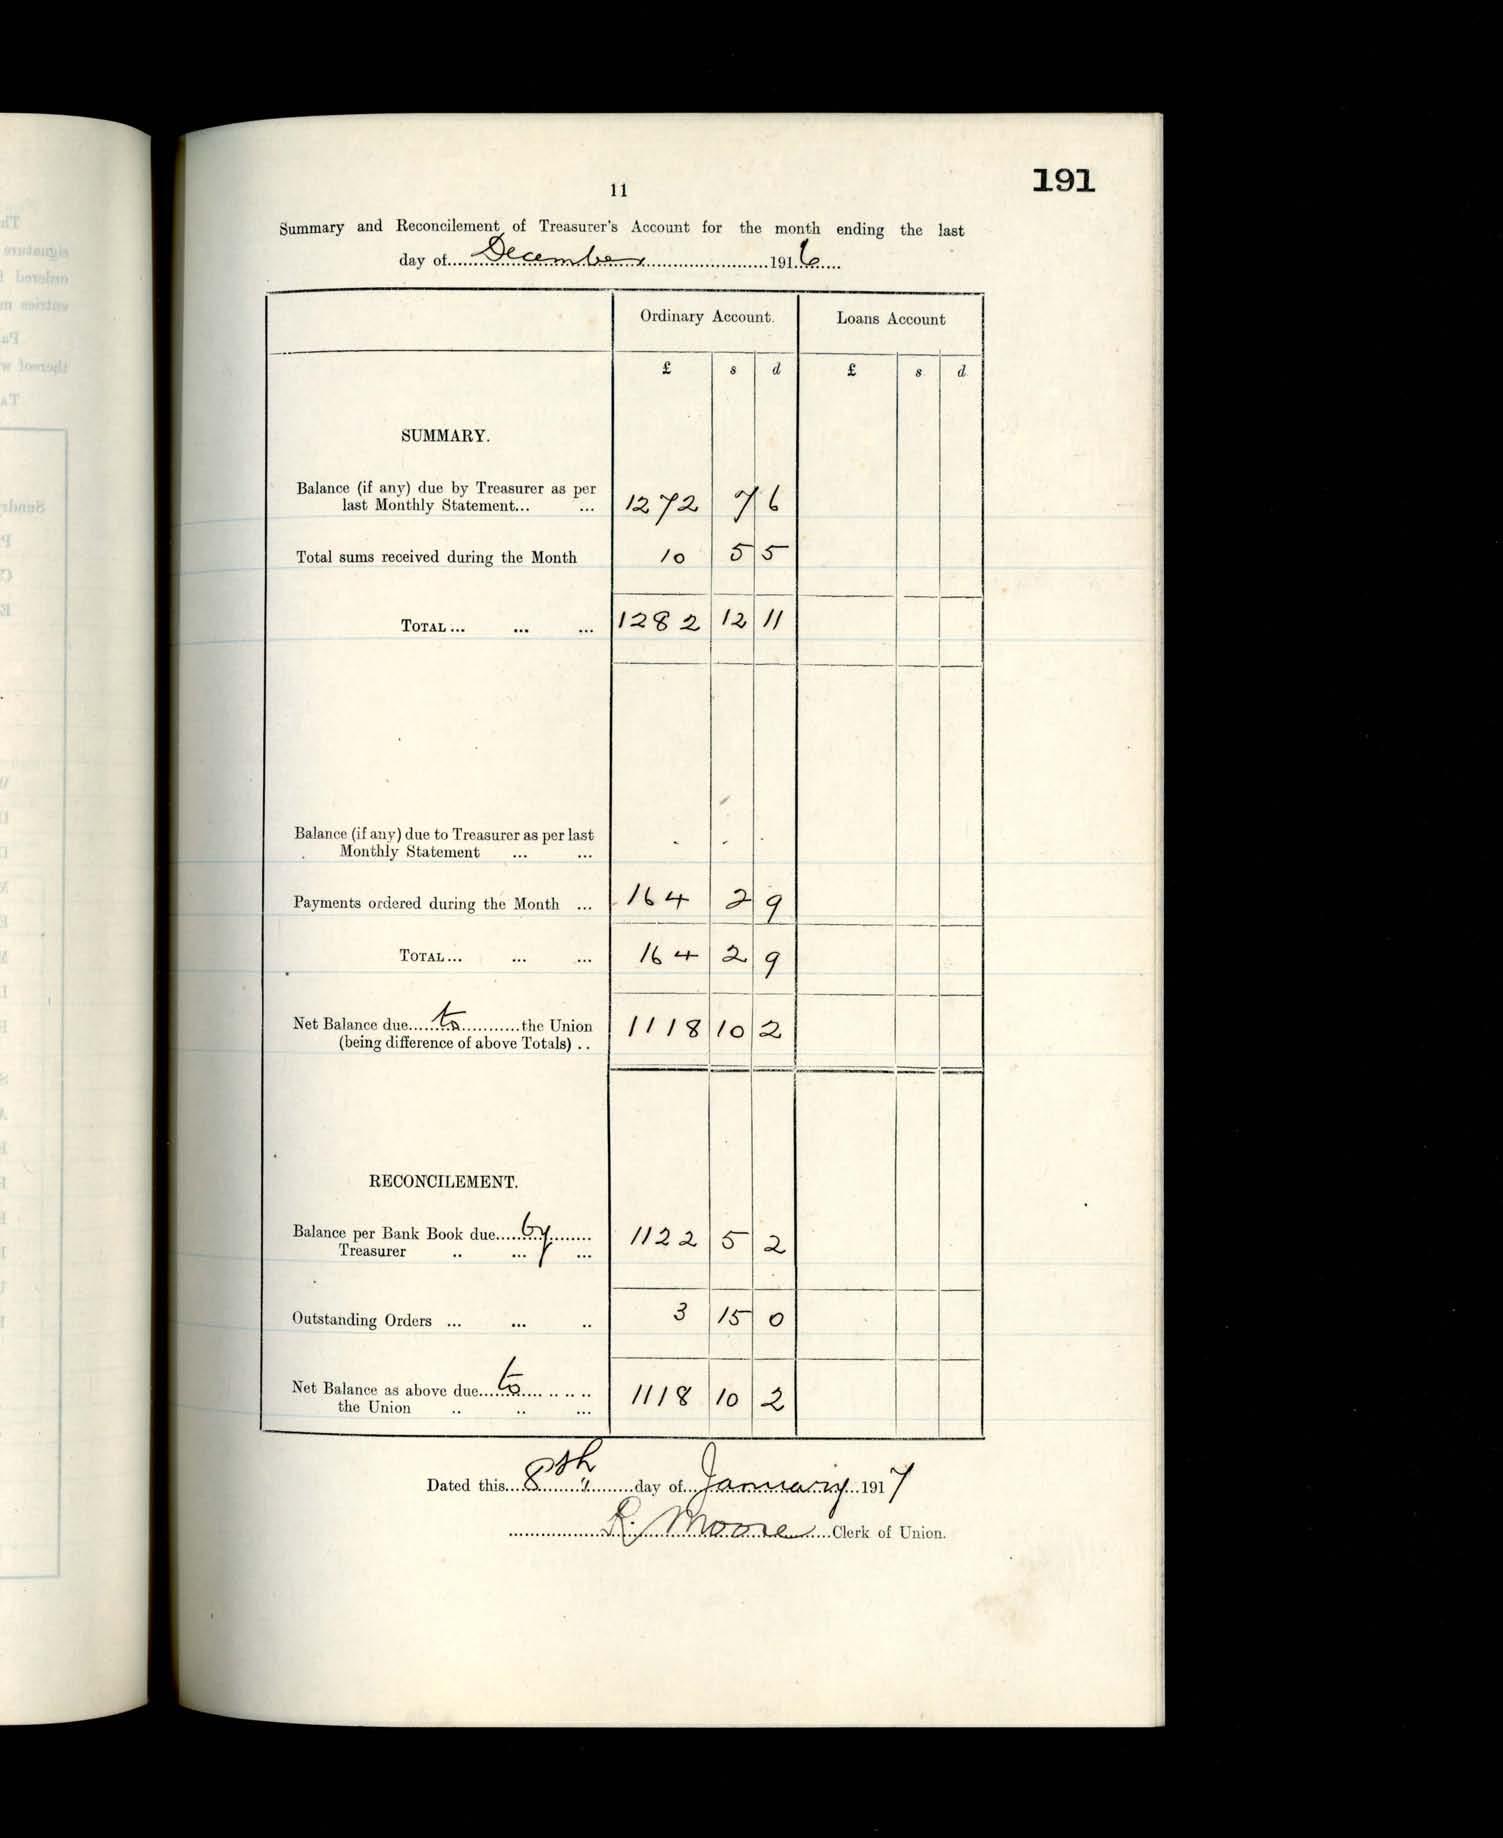 191
11
Summary and Reconcilement of Treasurer's Account for the month ending the last
day of......December......191.6....
Ordinary Account. Loans Account
£ s d £ s. d.
SUMMARY.
Balance (if any) due by Treasurer as per
last Monthly Statement... ... 1272 7 6
Total sums received during the Month 10 5 5
TOTAL... ... ... 1282 12 11
Balance (if any) due to Treasurer as per last
Monthly Statement ... ... - - -
Payments ordered during the Month ... 164 2 9
TOTAL... ... ... 164 2 9
Net Balance due......to............the Union
(being difference of above Totals) .. 1118 10 2
RECONCILEMENT.
Balance per Bank Book due.....by........
Treasurer .. ... ... 1122 5 2
Outstanding Orders ... ... .. 3 15 0
Net Balance as above due.....to.... .. .. ..
the Union .. .. ... 1118 10 2
Dated this...8th........day of...January...1917
..................R. Moore....Clerk of Union.